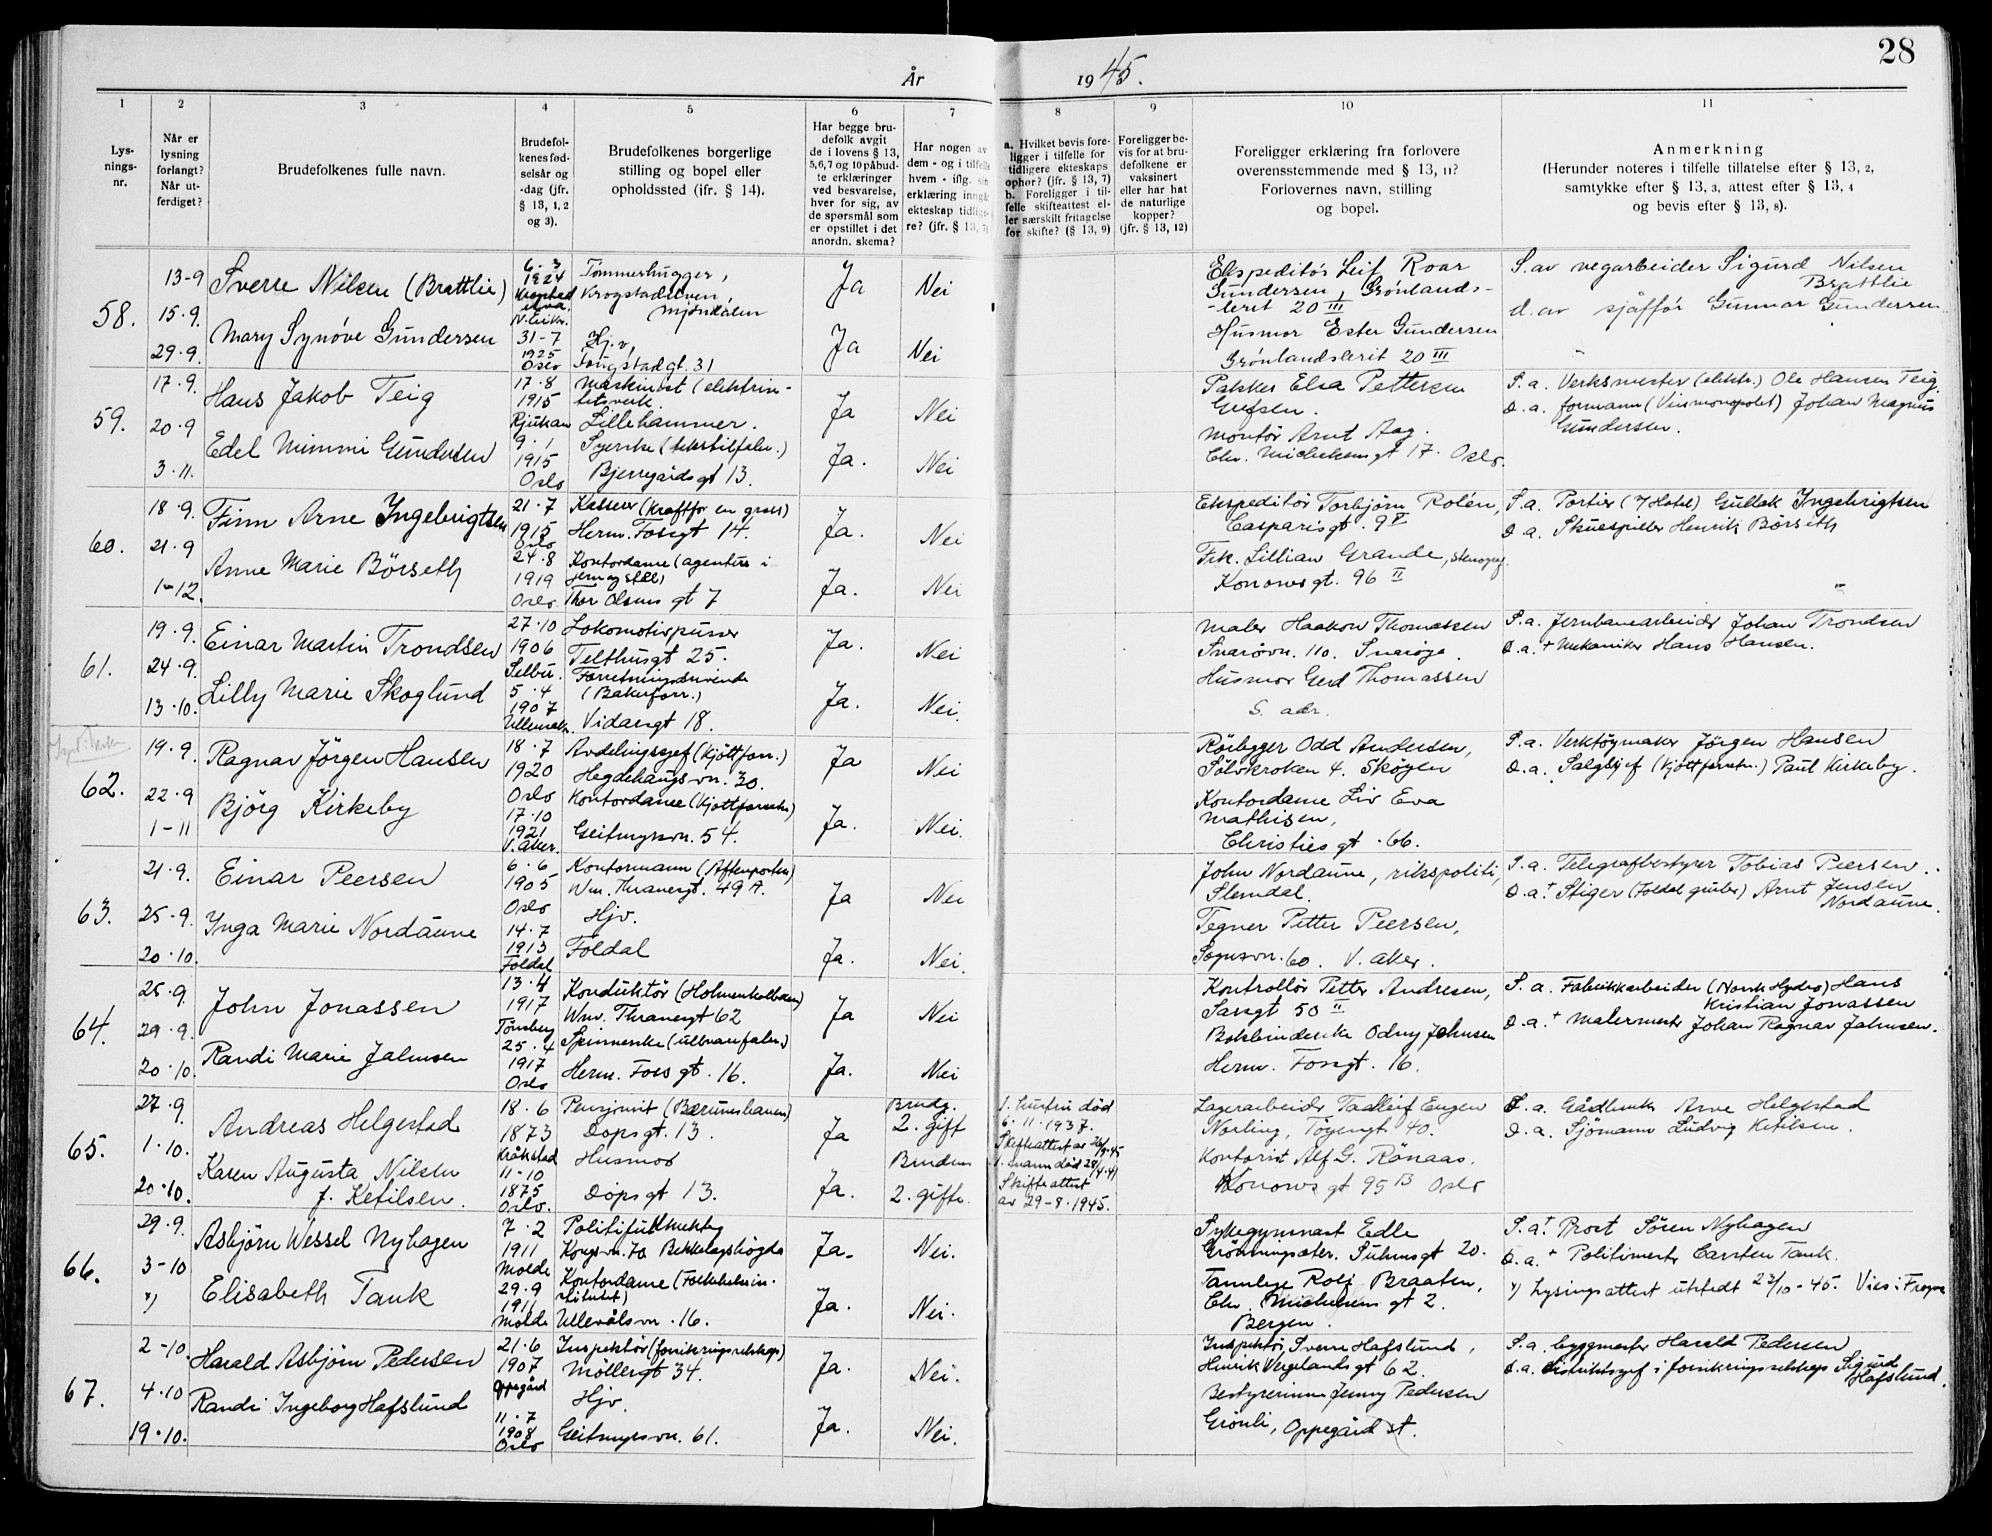 28
År 1945.
1 2 3 4 5 6 7 8 9 10 11
Lys-
nings-
nr.
Når er
lysning
forlangt?
Når ut-
ferdiget?
Brudefolkenes fulle navn.
Brudefol-
kenes fød-
selsår og
-dag (jfr.
§ 13, 1, 2
og 3).
Brudefolkenes borgerlige
stilling og bopel eller
opholdssted (jfr. § 14).
Har begge bru-
defolk avgit
de i lovens § 13,
5,6,7 og 10 påbud-
te erklæringer
ved besvarelse,
hver for sig, av
de spørsmål som
er opstillet i det
anordn. skema?
Har nogen av
dem - og i tilfelle
hvem - iflg. sin
erklæring inngå
ekteskap tidlige-
re? (jfr. § 13, 7)
a. Hvilket bevis fore-
ligger i tilfelle for
tidligere ekteskaps
ophør? (jfr. § 13, 7)
b. Foreligger i til-
felle skifteattest el-
ler særskilt fritagelse
for skifte? (§ 13, 9)
Foreligger be-
vis for at bru-
defolkene er
vaksinert
eller har hat
de naturlige
kopper?
(jfr. § 13, 12)
Foreligger erklæring fra forlovere
overensstemmende med § 13, 11?
Forlovernes navn, stilling
og bopel.
Anmerkning
(Herunder noteres i tilfelle tillatelse efter § 13, 2,
samtykke efter § 13, 3, attest efter § 13, 4
og bevis efter § 13, 8).
58.
13-9
15.9.
29.9.
Sverre Nilsen (Brattlie)
Mary Synøve Gundersen
6.3
1924
N. Eiker.
31-7
1925
Oslo
Tømmerhugger,
Krogstadelven,
Mjøndalen
Hj.v,
Fougstadgt. 31
Ja
Ja
Nei
Nei
Ekspeditör Leif Roar
Gundersen, Grønlands-
-leret 20 III
Husmor Ester Gundersen
Grønlandsleret 20 III
S. av vegarbeider Sigurd Nilsen
Brattlie
d. av sjåfför Gunnar Gundersen
59.
17.9.
20.9
3.11.
Hans Jakob Teig
Edel Mimmi Gundersen
17.8
1915
Rjukan
9.1
1915
Oslo
Maskinist (elektrisi-
tetsverk
Lillehammer.
Syerske (tekstilfabr.)
Bjerregårdsgt 13.
Ja
Ja.
Nei
Nei
Pakker Elsa Pettersen
Grefsen.
Montör Arnt Aag.
Chr. Michelsensgt 17. Oslo.
S. a. Verksmester (elektr.) Ole Hansen Teig.
D. a. formann (Vinmonopolet) Johan Magnus
Gundersen.
60.
18.9.
21.9
1-12.
Finn Arne Ingebrigtsen
Anne Marie Börseth
21.7
1915
Oslo
24.8
1919
Oslo.
Kasserer (Kraftfor en gross)
Herm. Fossgt 14.
Kontordame (agentur i
Thor Olsens gt 7
Ja.
Ja.
Nei
Nei
Ekspeditör Torbjörn Rolén,
Casparisgt. 9 V
Frk. Lillian Grande, stenogr.
Konowsgt. 96 II
S. a. Portier (Hotel) Gullak Ingebrigtsen
D a. Skuespiller Henrik Börseth
61.
19.9.
24.9.
13.10.
Einar Martin Trondsen
Lilly Marie Skoglund
27.10
1906
Selbu.
5.4
1907
Ullensak.
Lokomotivpusser
Telthusgt 25.
Forretningsdrivende
(Bakeforr.)
Vidarsgt 18.
Ja.
Ja.
Nei
Nei.
Maler Haakon Thomassen
Snarøvn. 110. Snarøya.
Husmor Gerd Thomassen
S. adr.
S. a. Jernbanearbeider Johan Trondsen
D. a. + Mekaniker Hans Hansen.
62.
19.9.
22.9
1-11
Ragnar Jörgen Hansen
Björg Kirkeby
18.7
1920
Oslo
17.10
1921
V. Aker.
Avdelingssjef (Kjöttforr.)
Hegdehaugsvn. 30.
Kontordame (Kjöttforretn.)
Geitmyrsvn. 54.
Ja
Ja.
Nei
Nei.
Rörlegger Odd Andersen,
Sölvkroken 4. Skøyen
Kontordame Liv Eva
Mathisen,
Christies gt. 66.
S. a. Verktöymaker Jörgen Hansen
D. a. Salgssjef (Kjöttforretn.) Paul Kirkeby.
63.
21.9.
25.9.
20.10.
Einar Peersen
Inga Marie Nordaune
6.6
1905
Oslo
14.7
1913
Foldal
Kontormann (Aftenposten)
Wm. Thranesgt. 49 A.
Hjv.
Foldal
Ja
Ja.
Nei
Nei.
John Nordaune, rikspoliti,
Slemdal.
Tegner Petter Peersen,
Sognsvn. 60. V. Aker.
S. a. Telegrafbestyrer Tobias Peersen.
D. a + Stiger (Foldal gruber) Arnt Jensen
Nordaune.
64.
25.9.
29.9.
20.10.
John Jonassen
Randi Marie Jahnsen
13.4
1917
Tönsberg
25.4
1917
Oslo
Konduktör (Holmenkolbanen)
Wm. Thranesgt 62
Spinnerske (ullvarefabr.)
Herm. Foss gt. 16.
Ja
Ja.
Nei
Nei
Kontrollör Petter Andresen,
Sarsgt 50 II
Bokbinderske Odny Johnsen
Herm. Fossgt. 16.
S. a. Fabrikkarbeider (Norsk Hydro) Hans
Kristian Jonassen
D. a. + Malermester Johan Ragnar Jahnsen.
65.
27.9.
1.10.
20.10.
Andreas Helgestad
Karen Augusta Nilsen
f. Ketilsen.
18.6
1873
Kråkstad
11-10
1875
Oslo.
Pensjonist (Bærumsbanen)
Dopsgt. 13.
Husmor
Dopsgt 13.
Ja
Ja.
Brudg.
2. gift
Bruden
2. gifte.
1. hustru död
6.11.1937.
Skifteattest av 26/9.45
1. mann död 28/4.41
Skifteattest
av 29-8.1945.
Lagerarbeider Tadleif Eugen
Norling, Töyengt 40.
Kontorist Alf G. Rönaas.
Konows gt 95 B Oslo
S. a. Gådbruker Arne Helgestad
D. a. Sjömann Ludvig Ketilsen.
66.
29.9.
3-10
x)
Asbjörn Wessel Nyhagen
Elisabeth Tank
7.2
1911
Molde
29.9
1911
Molde
Politifullmektig
Kongsvn. 70 Bekkelagshögda
Kontordame (Folkehelsein-
stituttet)
Ullevålsvn. 16.
Ja.
Ja.
Nei.
Nei.
Sykegymnast Edle
Grönningsæter. Suhmsgt 20.
Tannlege Rolf Braaten,
Chr. Michelsens gt 2.
Bergen.
S. a + Prost Sören Nyhagen
D. a. + Politimester Carsten Tank.
x) Lysingsattest utstedt 23/10-45. Vies i Frogner
67.
2-10.
4.10
19.10.
Harald Asbjörn Pedersen
Randi Ingeborg Hafslund
21.6
1907
Oppegård
11.7
1908
Oslo
Inspektör (forsikringsselskap)
Möllergt 34.
Hjv.
Geitmyrsvn. 61.
Ja.
Ja.
Nei.
Nei.
Inspektör Sverre Hafslund,
Henrik Vergelands gt 62.
Bestyrerinne Jenny Pedersen
Grönli, Oppegård st.
S. a. byggmester Harald Pedersen
d. a. distriktssjef i forsikringsselskap Sigurd
Hafslund.